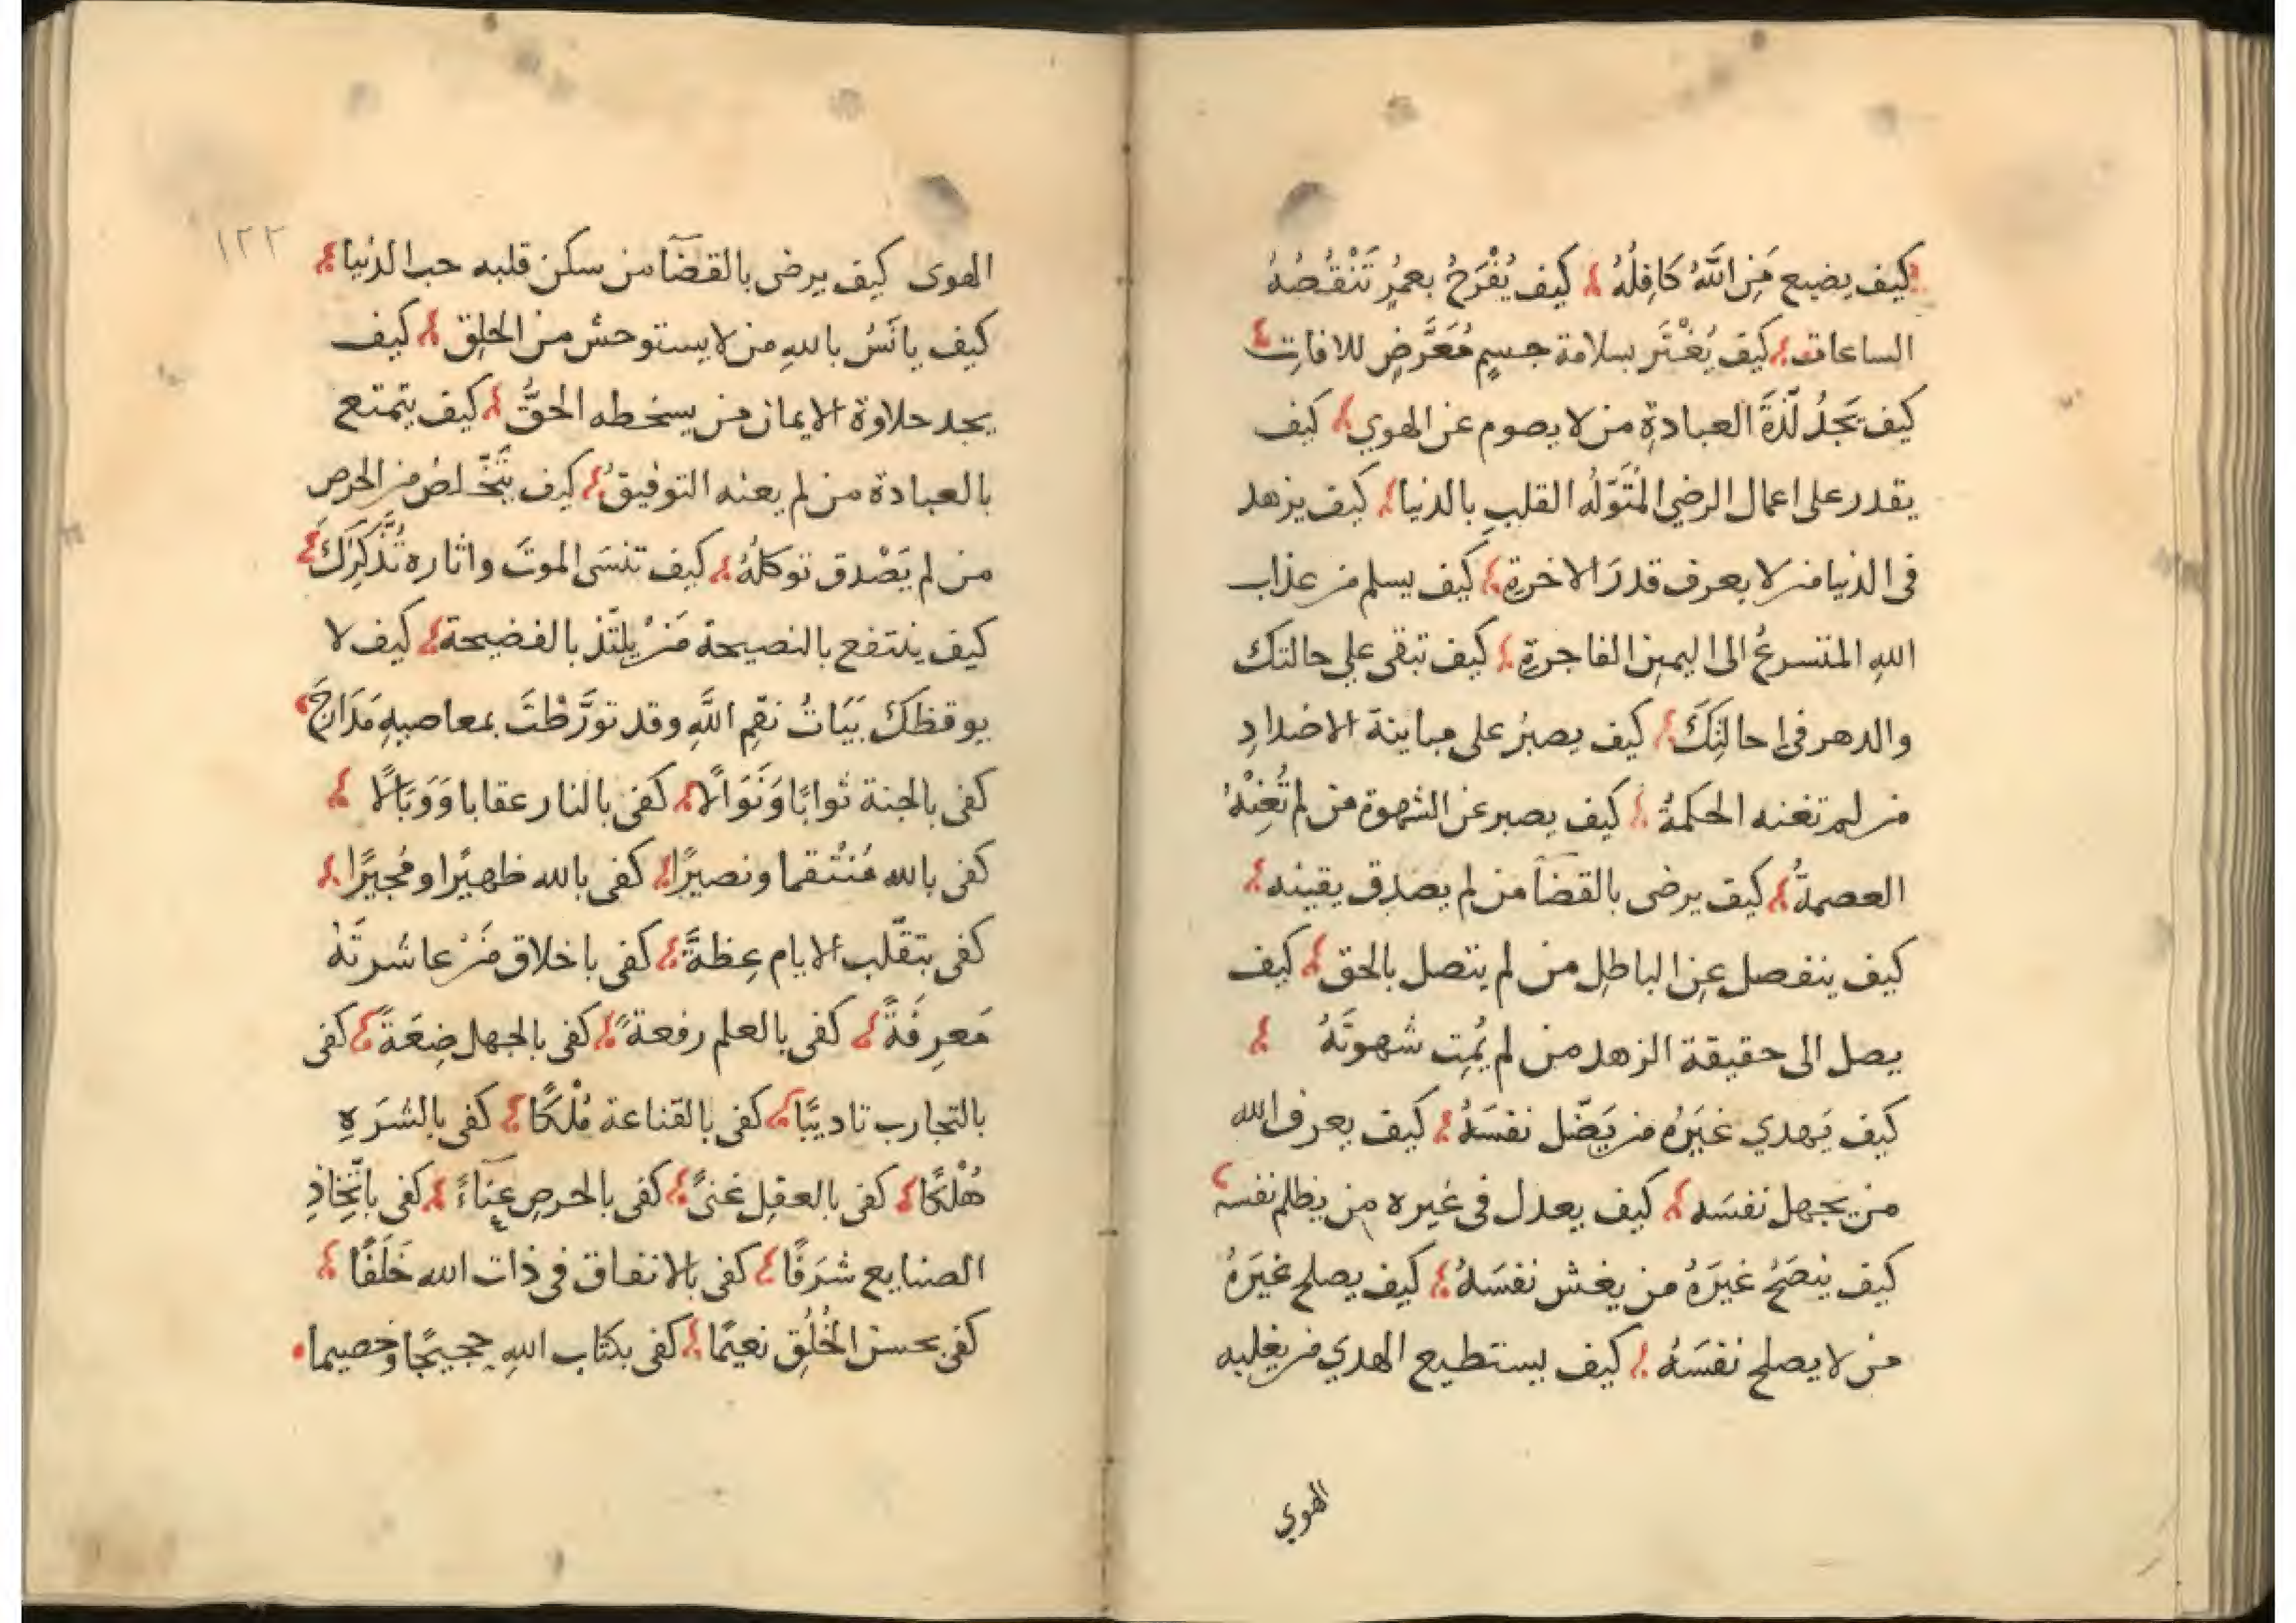 كيف يضيع مَنِ اللَّهُ كَافِلُهُ كيف يُفْرَحُ بعمُرٍ تَنْقُصُهُ
الساعات كيف يُغْتَر بسلامة جسمٍ مُعَرَّضٍ للافاتِ
كيف يَجدُ لَذّةَ العبادةِ من لا يصوم عن الهوي كيف
يقدر على اعمال الرضي المُتَوَلّه القلبِ بالدنيا كيف يزهد
فى الدنيا من لا يعرف قدرَ الاخرةِ كيف يسلم من عذاب
اللهِ المتسرعُ الى اليمينِ الفاجرةِ كيف تبقى علي حالتك
والدهر فى احالتِكَ كيف يصبرُ على مباينة الاضدادِ
من لم تعنه الحكمةُ كيف يصبر عن الشهوة من لم تُعِنْهُ
العصمةُ كيف يرضى بالقضآ من لم يصدق يقينه
كيف ينفصل عنِ الباطلِ من لم يتصل بالحق كيف
يصل الى حقيقة الزهد من لم يُمِت شهوتَهُ
كيف يَهدي غيَرهُ من يَضّل نفسَهُ كيف يعرف الله
من يجهل نفسَه كيف يعدل فى غيره من يظلم نفسه
كيف ينصَحُ غيرَهُ من يغش نفسَهُ كيف يصلح غيَرهُ
من لا يصلح نفسَهُ كيف يستطيع الهدي من يغلبه
الهوي
١٢٢
الهوى كيف يرضى بالقضآ من سكن قلبه حب الدنيا
كيف يانَسُ باللهِ من لا يستوحش من الخلق كيف
يجد حلاوة الايمان من يسخطه الحقُّ كيف يتمتع
بالعبادة من لم يعنه التوفيقُ كيف يتَخّلصُ من الحرص
من لم يَصْدق توكلُهُ كيف تنسَى الموتَ واثاره تُذَكِّرَكَ
كيف ينتفع بالنصيحة مَنْ يلتّذ بالفضيحة كيف لا
يوقظك بَيَاتُ نقمِ اللَّهِ وقد تورَّطْتَ بمعاصيهِ مَدَارِجَ
كفى بالجنة ثوابًا وَنَوَالًا كفى بالنار عقابا وَوَبَالًا
كفى بالله مُنْتقما ونصيرًا كفى بالله ظهيرًا ومُجيرًا
كفى بتقّلب الايام عِظةً كفى باخلاق مَنْ عاشرتَهُ
مَعرِفَةً كفى بالعلم رفعةً كفى بالجهل ضِعَةً كفى
بالتجارب تاديبًا كفى بالقناعة مُلْكًا كفى بالشرَهِ
هُلْكًا كفى بالعقلِ غنىً كفى بالحرصِ عنآءً كفى باتّخِاذِ
الصنايع شرَفًا كفى بالانفاق فى ذات الله خَلَفًا
كفى بحسن الخُلُقِ نعيمًا كفى بكتاب اللهِ حجيجًا وخصيما